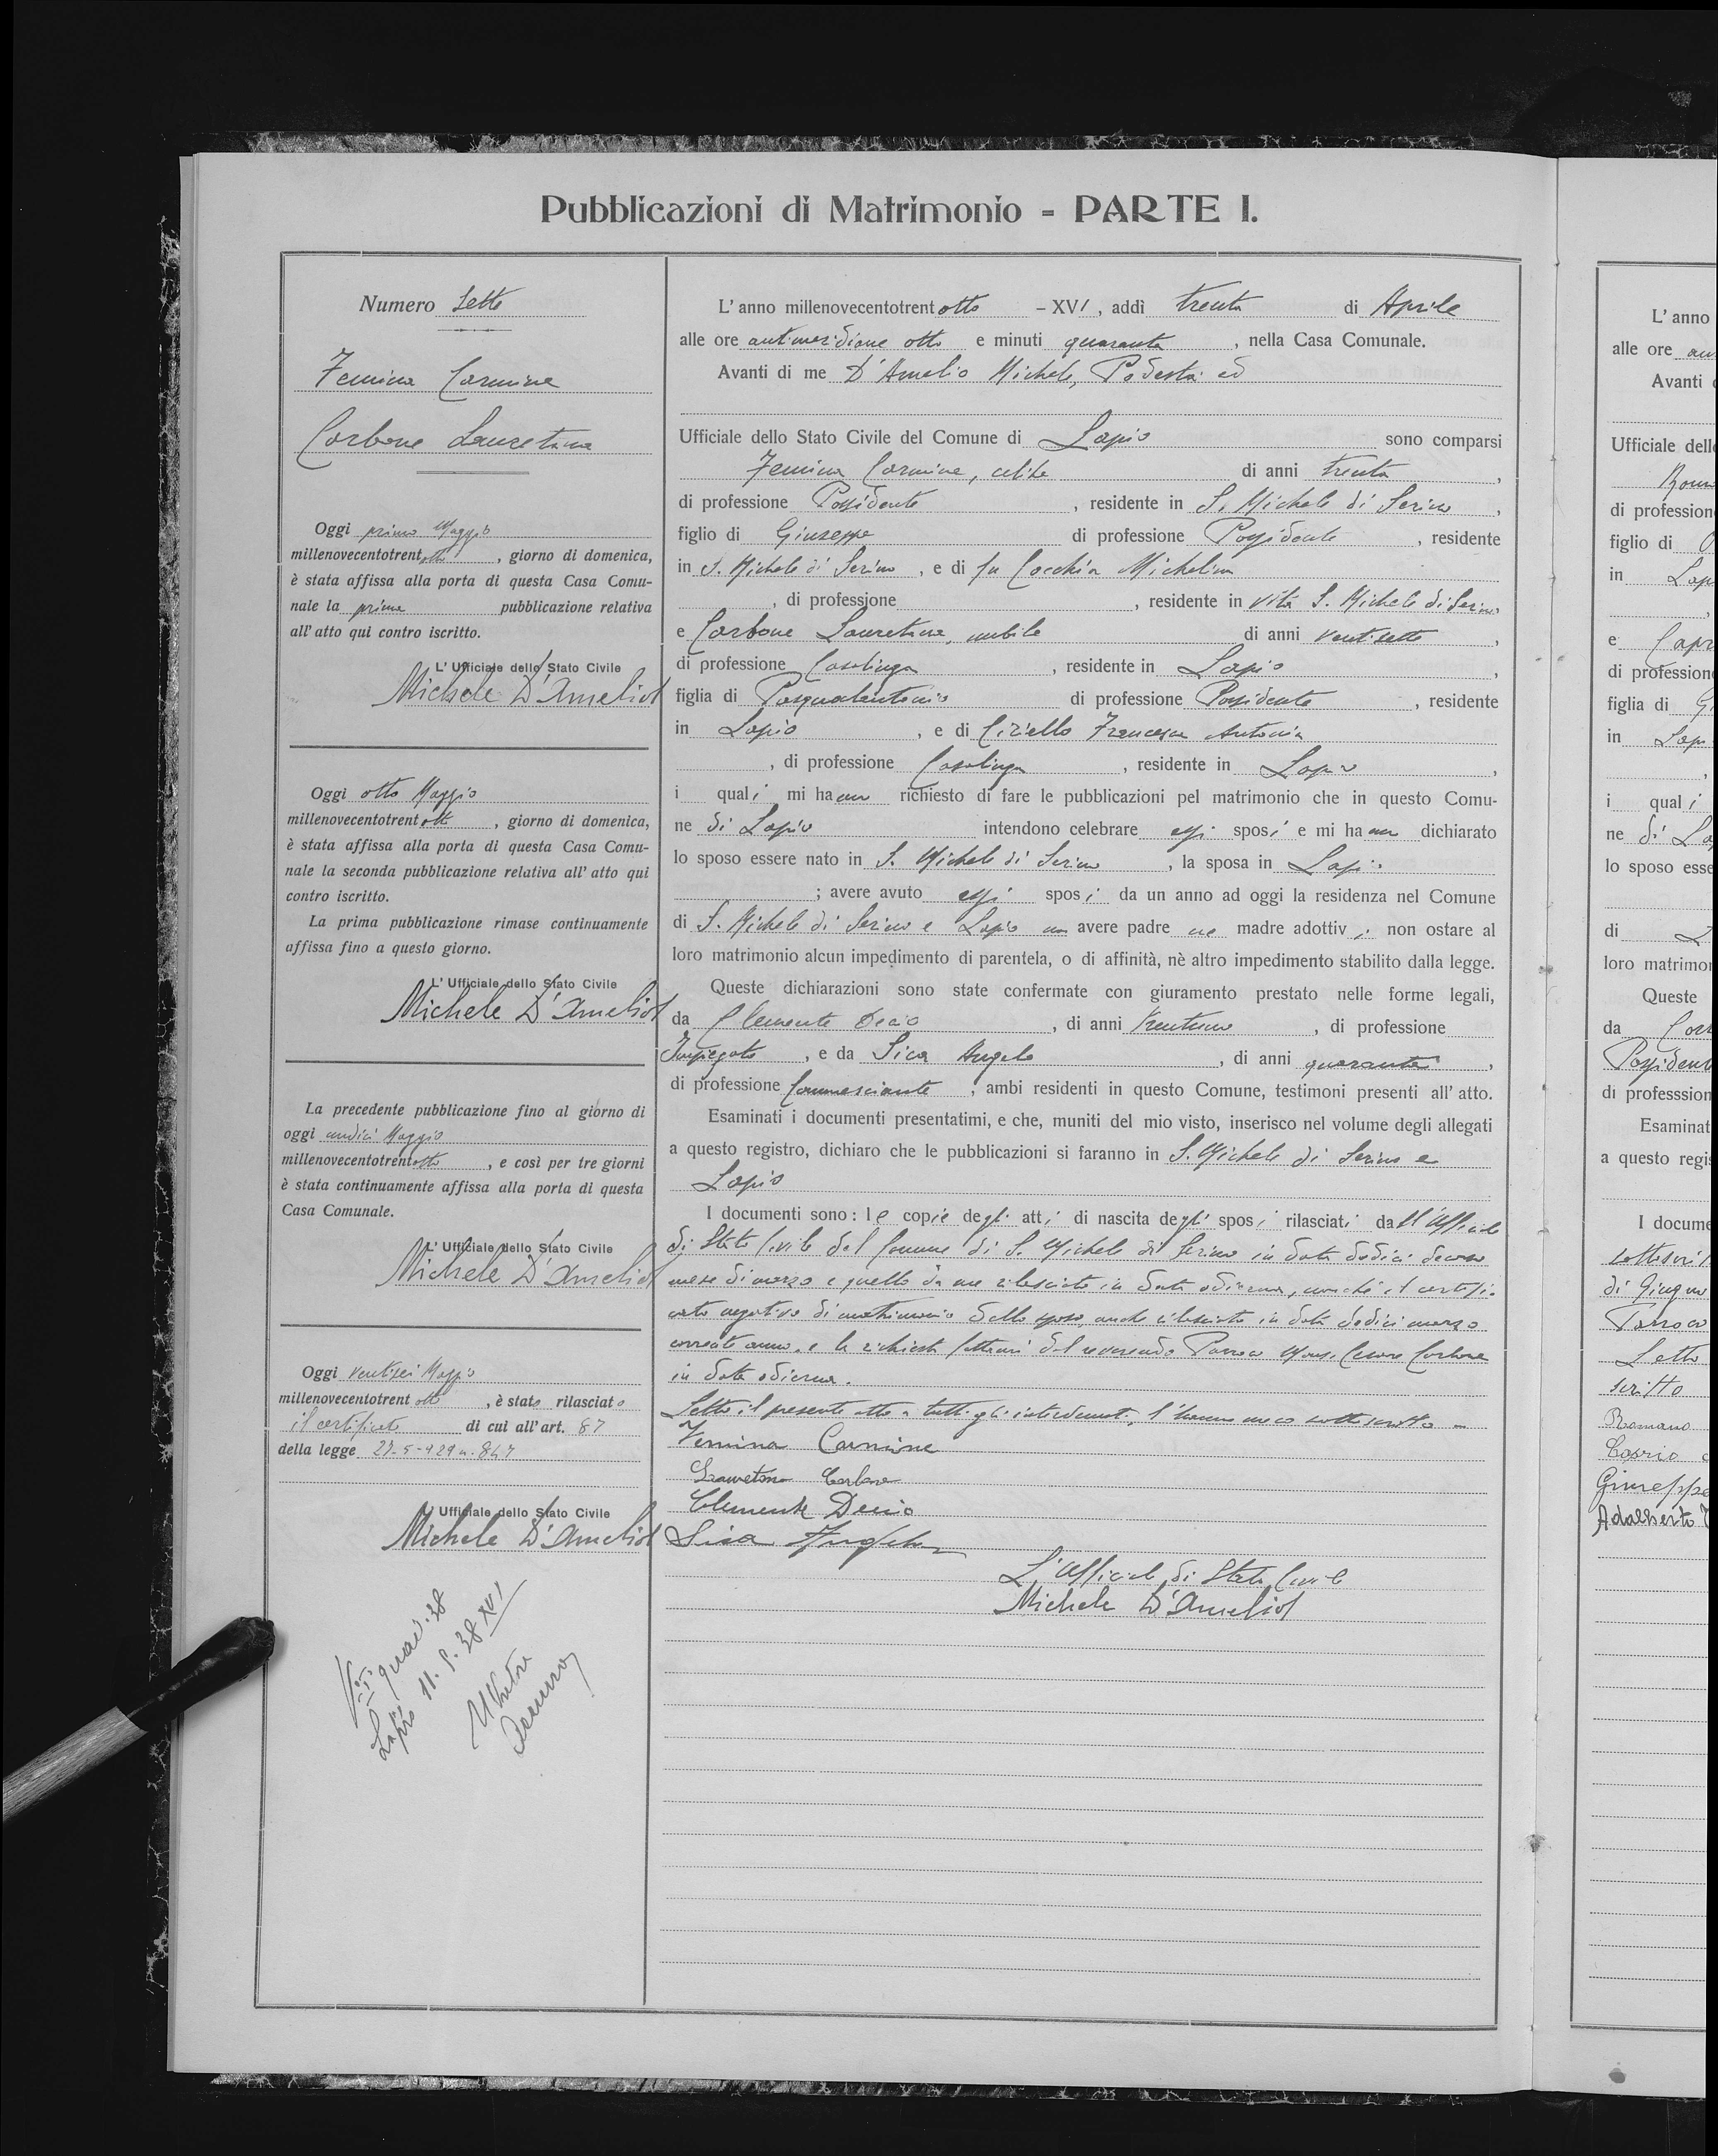 Pubblicazioni di Matrimonio - PARTE I.
Numero Sette
Femina Carmine
Carbone Lauretana
Oggi primo Maggio
millenovecentotrentotto, giorno di domenica,
è stata affissa alla porta di questa Casa Comu-
nale la prima pubblicazione relativa
all'atto qui contro iscritto.
L'Ufficiale dello Stato Civile
Michele D'Amelio
Oggi otto Maggio
millenovecentotrentotto, giorno di domenica,
è stata affissa alla porta di questa Casa Comu-
nale la seconda pubblicazione relativa all'atto qui
contro iscritto.
La prima pubblicazione rimase continuamente
affissa fino a questo giorno.
L'Ufficiale dello Stato Civile
Michele D'Amelio
La precedente pubblicazione fino al giorno di
oggi undici Maggio
millenovecentotrentotto, e così per tre giorni
è stata continuamente affissa alla porta di questa
Casa Comunale.
L'Ufficiale dello Stato Civile
Michele D'Amelio
Oggi ventisei Maggio
millenovecentotrentotto, è stato rilasciato
il certificato di cui all'art. 87
della legge 27-5-929 n. 847
L'Ufficiale dello Stato Civile
Michele D'Amelio
Lapio 11. 5. 38 XVI
L'anno millenovecentotrentotto - XVI, addì trenta di Aprile
alle ore antimeridiane otto e minuti quaranta, nella Casa Comunale.
Avanti di me D'Amelio Michele, Podestà ed
Ufficiale dello Stato Civile del Comune di Lapio sono comparsi
Femina Carmine, celibe di anni trenta,
di professione Possidente, residente in S. Michele di Serino,
figlio di Giuseppe di professione Possidente, residente
in S. Michele di Serino, e di fu Cocchia Michelina
, di professione , residente in vita S. Michele di Serino
e Carbone Lauretana, nubile di anni ventisette,
di professione Casalinga, residente in Lapio,
figlia di Pasqualantonio di professione Possidente, residente
in Lapio, e di Ciriello Francesca Antonia
, di professione Casalinga, residente in Lapio,
i quali mi hanno richiesto di fare le pubblicazioni pel matrimonio che in questo Comu-
ne di Lapio intendono celebrare essi sposi e mi hanno dichiarato
lo sposo essere nato in S. Michele di Serino, la sposa in Lapio
; avere avuto essi sposi da un anno ad oggi la residenza nel Comune
di S. Michele di Serino e Lapio non avere padre ne madre adottivi; non ostare al
loro matrimonio alcun impedimento di parentela, o di affinità, nè altro impedimento stabilito dalla legge.
Queste dichiarazioni sono state confermate con giuramento prestato nelle forme legali,
da Clemente Decio, di anni trentuno, di professione
Impiegato, e da Sica Angelo, di anni quaranta,
di professione Commerciante, ambi residenti in questo Comune, testimoni presenti all'atto.
Esaminati i documenti presentatimi, e che, muniti del mio visto, inserisco nel volume degli allegati
a questo registro, dichiaro che le pubblicazioni si faranno in S. Michele di Serino e
Lapio
I documenti sono: le copie degli atti di nascita degli sposi rilasciati dall'Ufficiale
di Stato Civile del Comune di S. Michele di Serino in data dodici decorso
mese di marzo e quello da me rilasciato in data odierna, nonché il certifi-
cato negativo di matrimonio dello sposo, anche rilasciato in data dodici marzo
corrente anno, e la richiesta fattami dal reverendo Parroco Mons. Cesare Carbone
in data odierna.
Letto il presente atto a tutti gli intervenuti, l'hanno meco sottoscritto
Femina Carmine
Lauretana Carbone
Clemente Decio
Sica Angelo
L'Ufficiale di Stato Civile
Michele D'Amelio
L'anno
alle ore
Avanti
Ufficiale dell
di profession
figlio di
in Lap
e Capr
di profession
figlia di G
in Lap
i quali
ne di La
lo sposo esse
di L
loro matrimo
Queste
da
Possident
di professsion
Esaminat
a questo regis
I docume
sottoscrit
di Giugno
Parroco
Letto
scritto
Romano
Caprio
Giuseppe
Adalberto